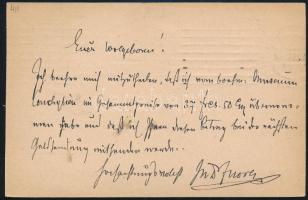 Euer Wolgeboren!
Ich beehre mich mitzutheilen, daß ich vom boehm. Museum
im Gesammtpreise von 37 fl 50 übernom-
men habe und daß ich Ihnen diesen Betrag bei der nächsten
Geldsendung mitsenden werde.
Hochachtungsvollst